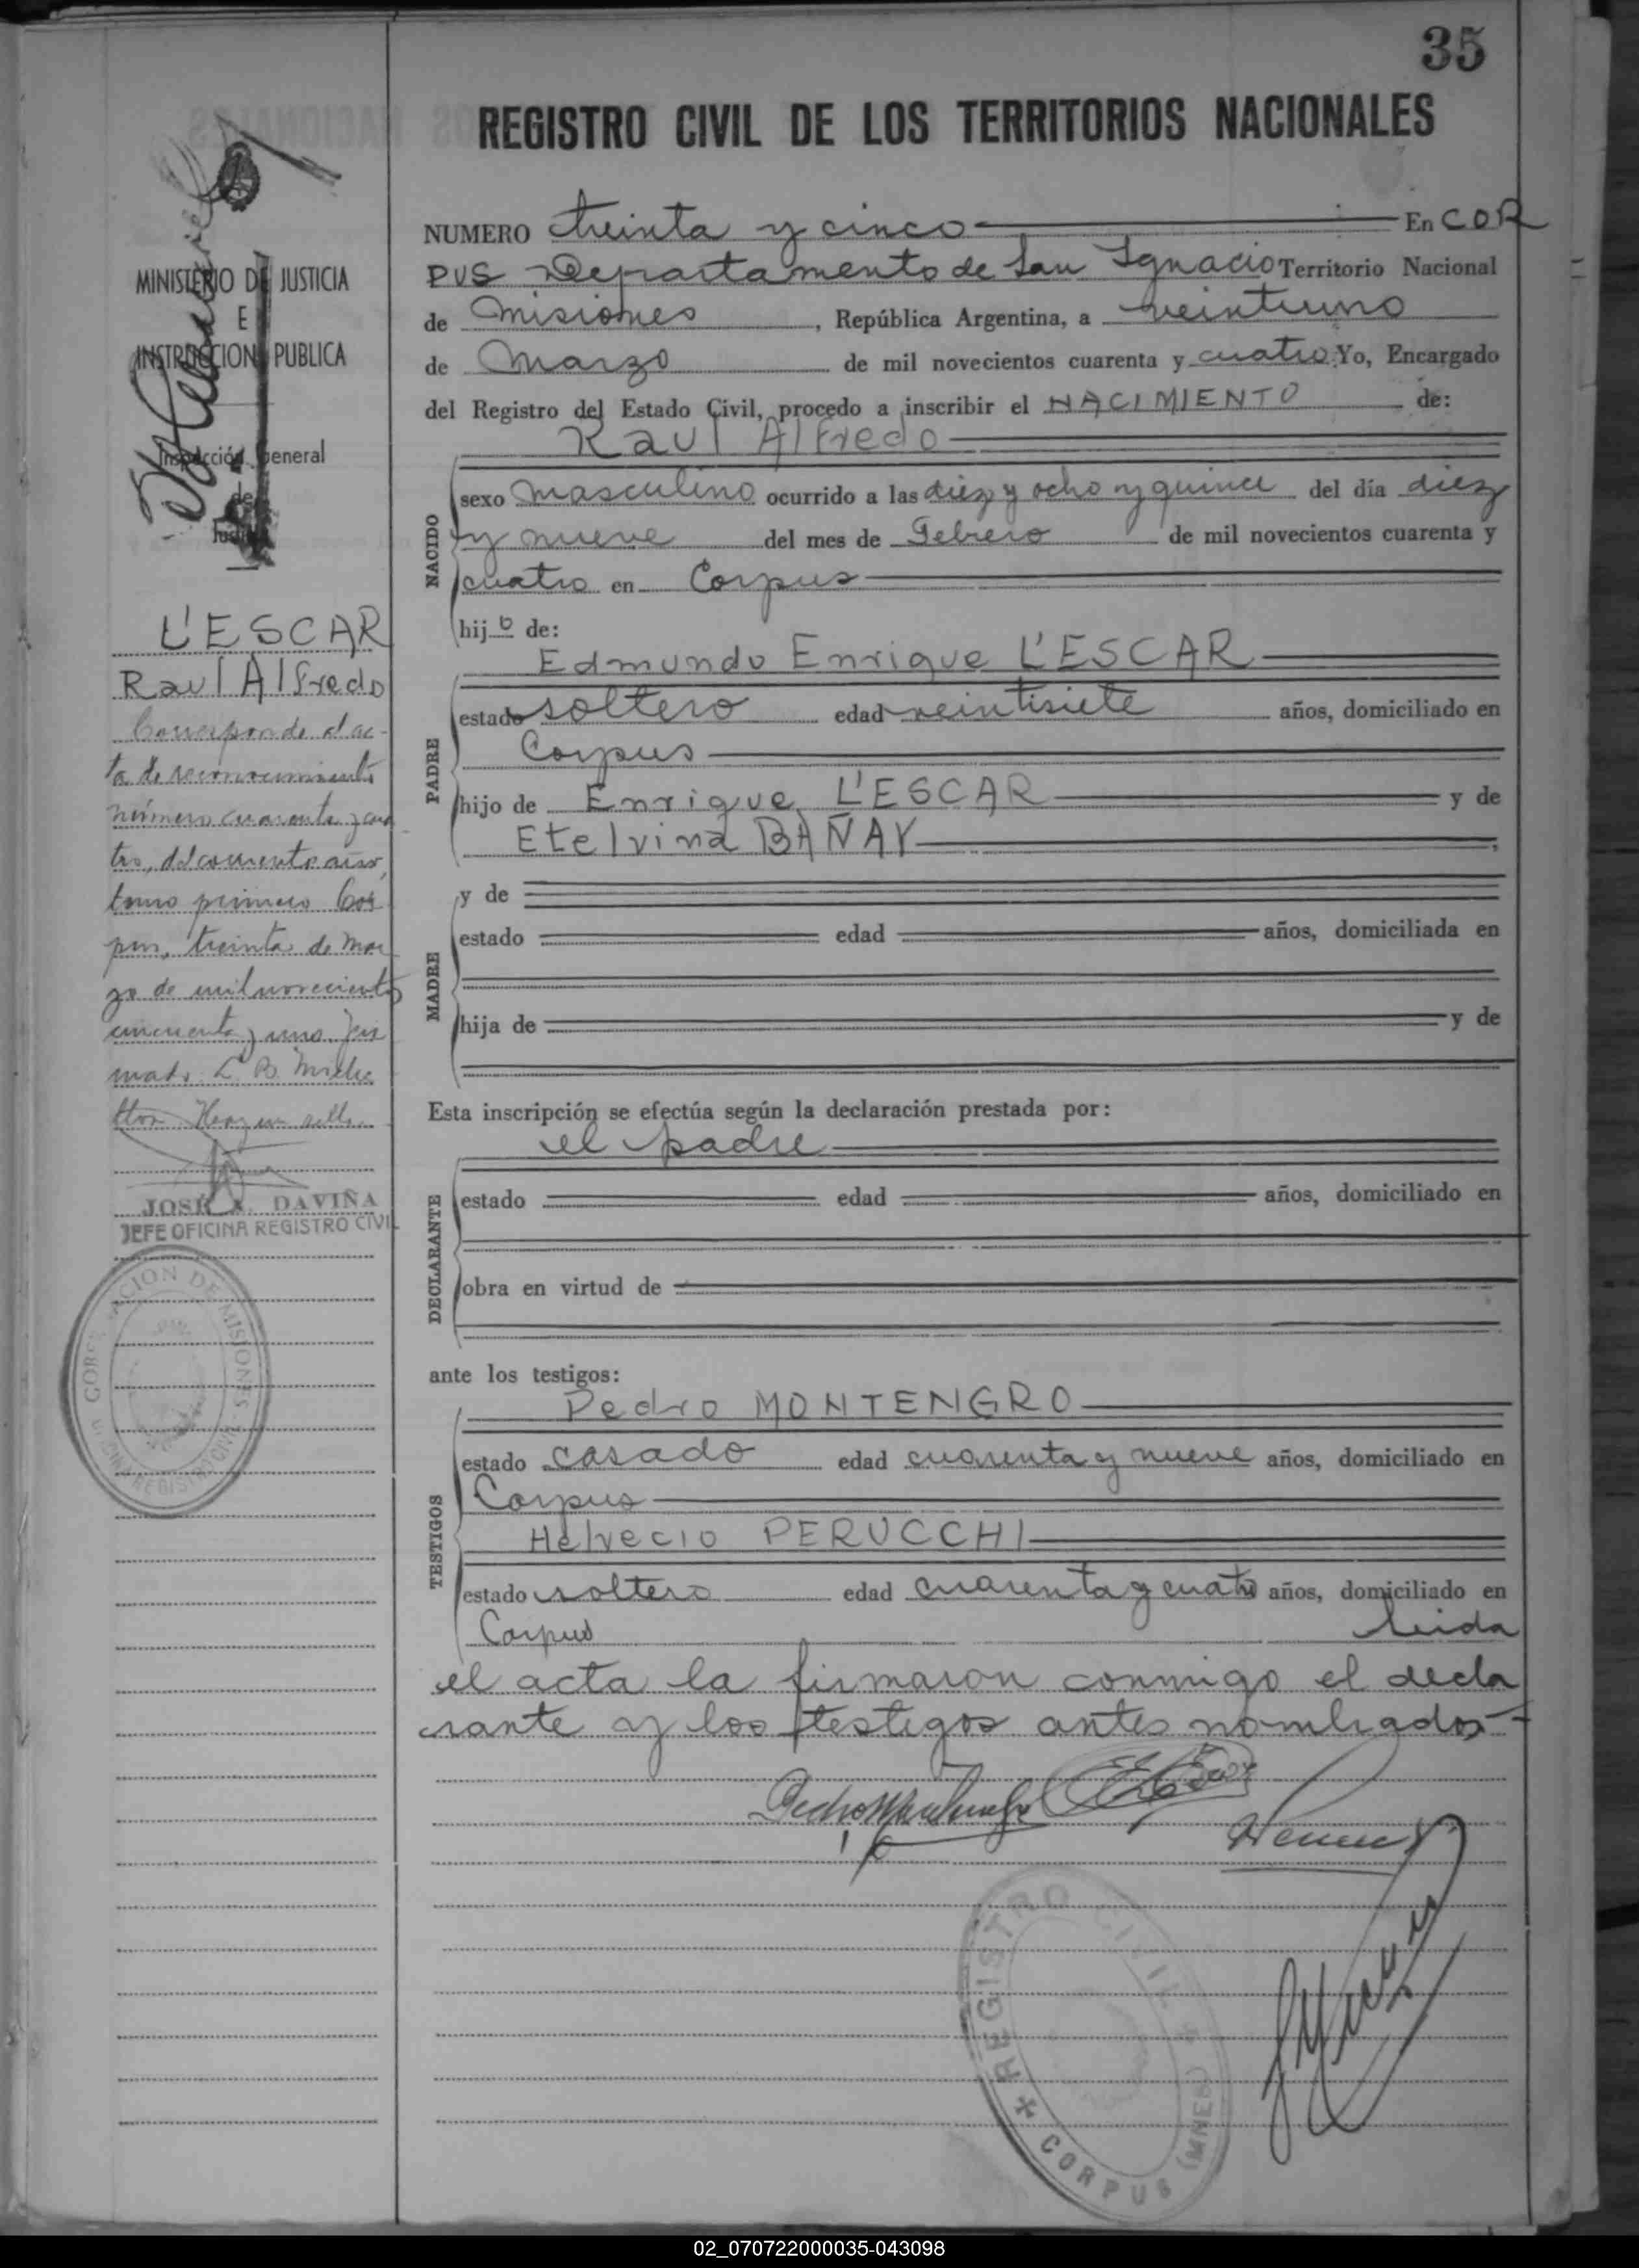 35
REGISTRO CIVIL DE LOS TERRITORIOS NACIONALES
MINISTERIO DE JUSTICIA
E
INSTRUCCION PUBLICA
Inspección General
de
Justicia
L'ESCAR
Raul Alfredo
Corresponde al ac-
ta de reconocimiento
número cuarenta y cua
tro, del corriente año,
tomo primero Cor
pus, treinta de Mar
zo de mil novecientos
cincuenta y uno. Fir
mado: L. B.
Hay un sello.
JOSE A. DAVIÑA
JEFE OFICINA REGISTRO CIVIL
GOBERNACION DE MISIONES
OFICINA REGISTRO CIVIL
NUMERO treinta y cinco En COR
PUS Departamento de San Ignacio Territorio Nacional
de Misiones, República Argentina, a veintiuno
de Marzo de mil novecientos cuarenta y cuatro. Yo, Encargado
del Registro del Estado Civil, procedo a inscribir el NACIMIENTO de:
Raul Alfredo
NACIDO
sexo masculino ocurrido a las diez y ocho y quince del día diez
y nueve del mes de Febrero de mil novecientos cuarenta y
cuatro en Corpus
hijo de:
Edmundo Enrique L'ESCAR
PADRE
estado soltero edad veintisiete años, domiciliado en
Corpus
hijo de Enrique L'ESCAR y de
Etelvina BAÑAY
MADRE
y de
estado edad años, domiciliada en
hija de y de
Esta inscripción se efectúa según la declaración prestada por:
el padre
DECLARANTE
estado edad años, domiciliado en
obra en virtud de
ante los testigos:
Pedro MONTENGRO
TESTIGOS
estado casado edad cuarenta y nueve años, domiciliado en
Corpus
Helvecio PERUCCHI
estado soltero edad cuarenta y cuatro años, domiciliado en
Corpus leida
el acta la firmaron conmigo el decla
rante y los testigos antes nombrados
REGISTRO CIVIL
CORPUS (MNES)
02_070722000035-043098